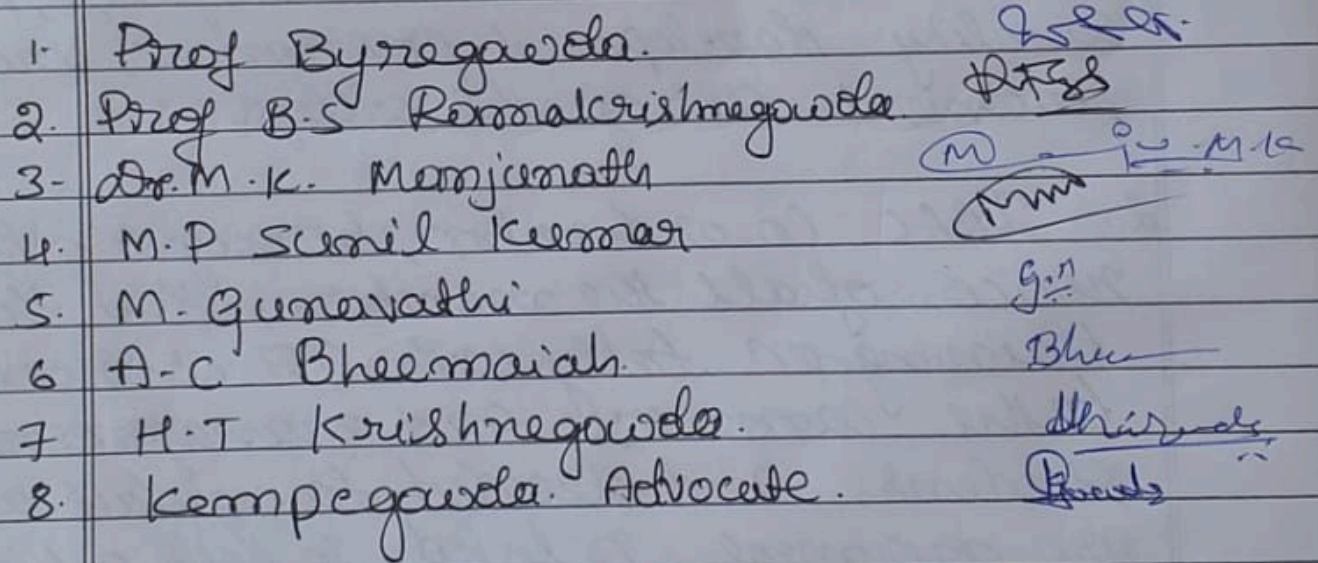 1. Prof Byregowda.
2. Prof B.S Ramakrishnegowda
3- Dr. M.K. Manjunath M.K
4. M.P Sunil Kumar
5. M. Gunavathi
6 A-C Bheemaiah
7 H.T Krishnegowda.
8. Kempegowda. Advocate.